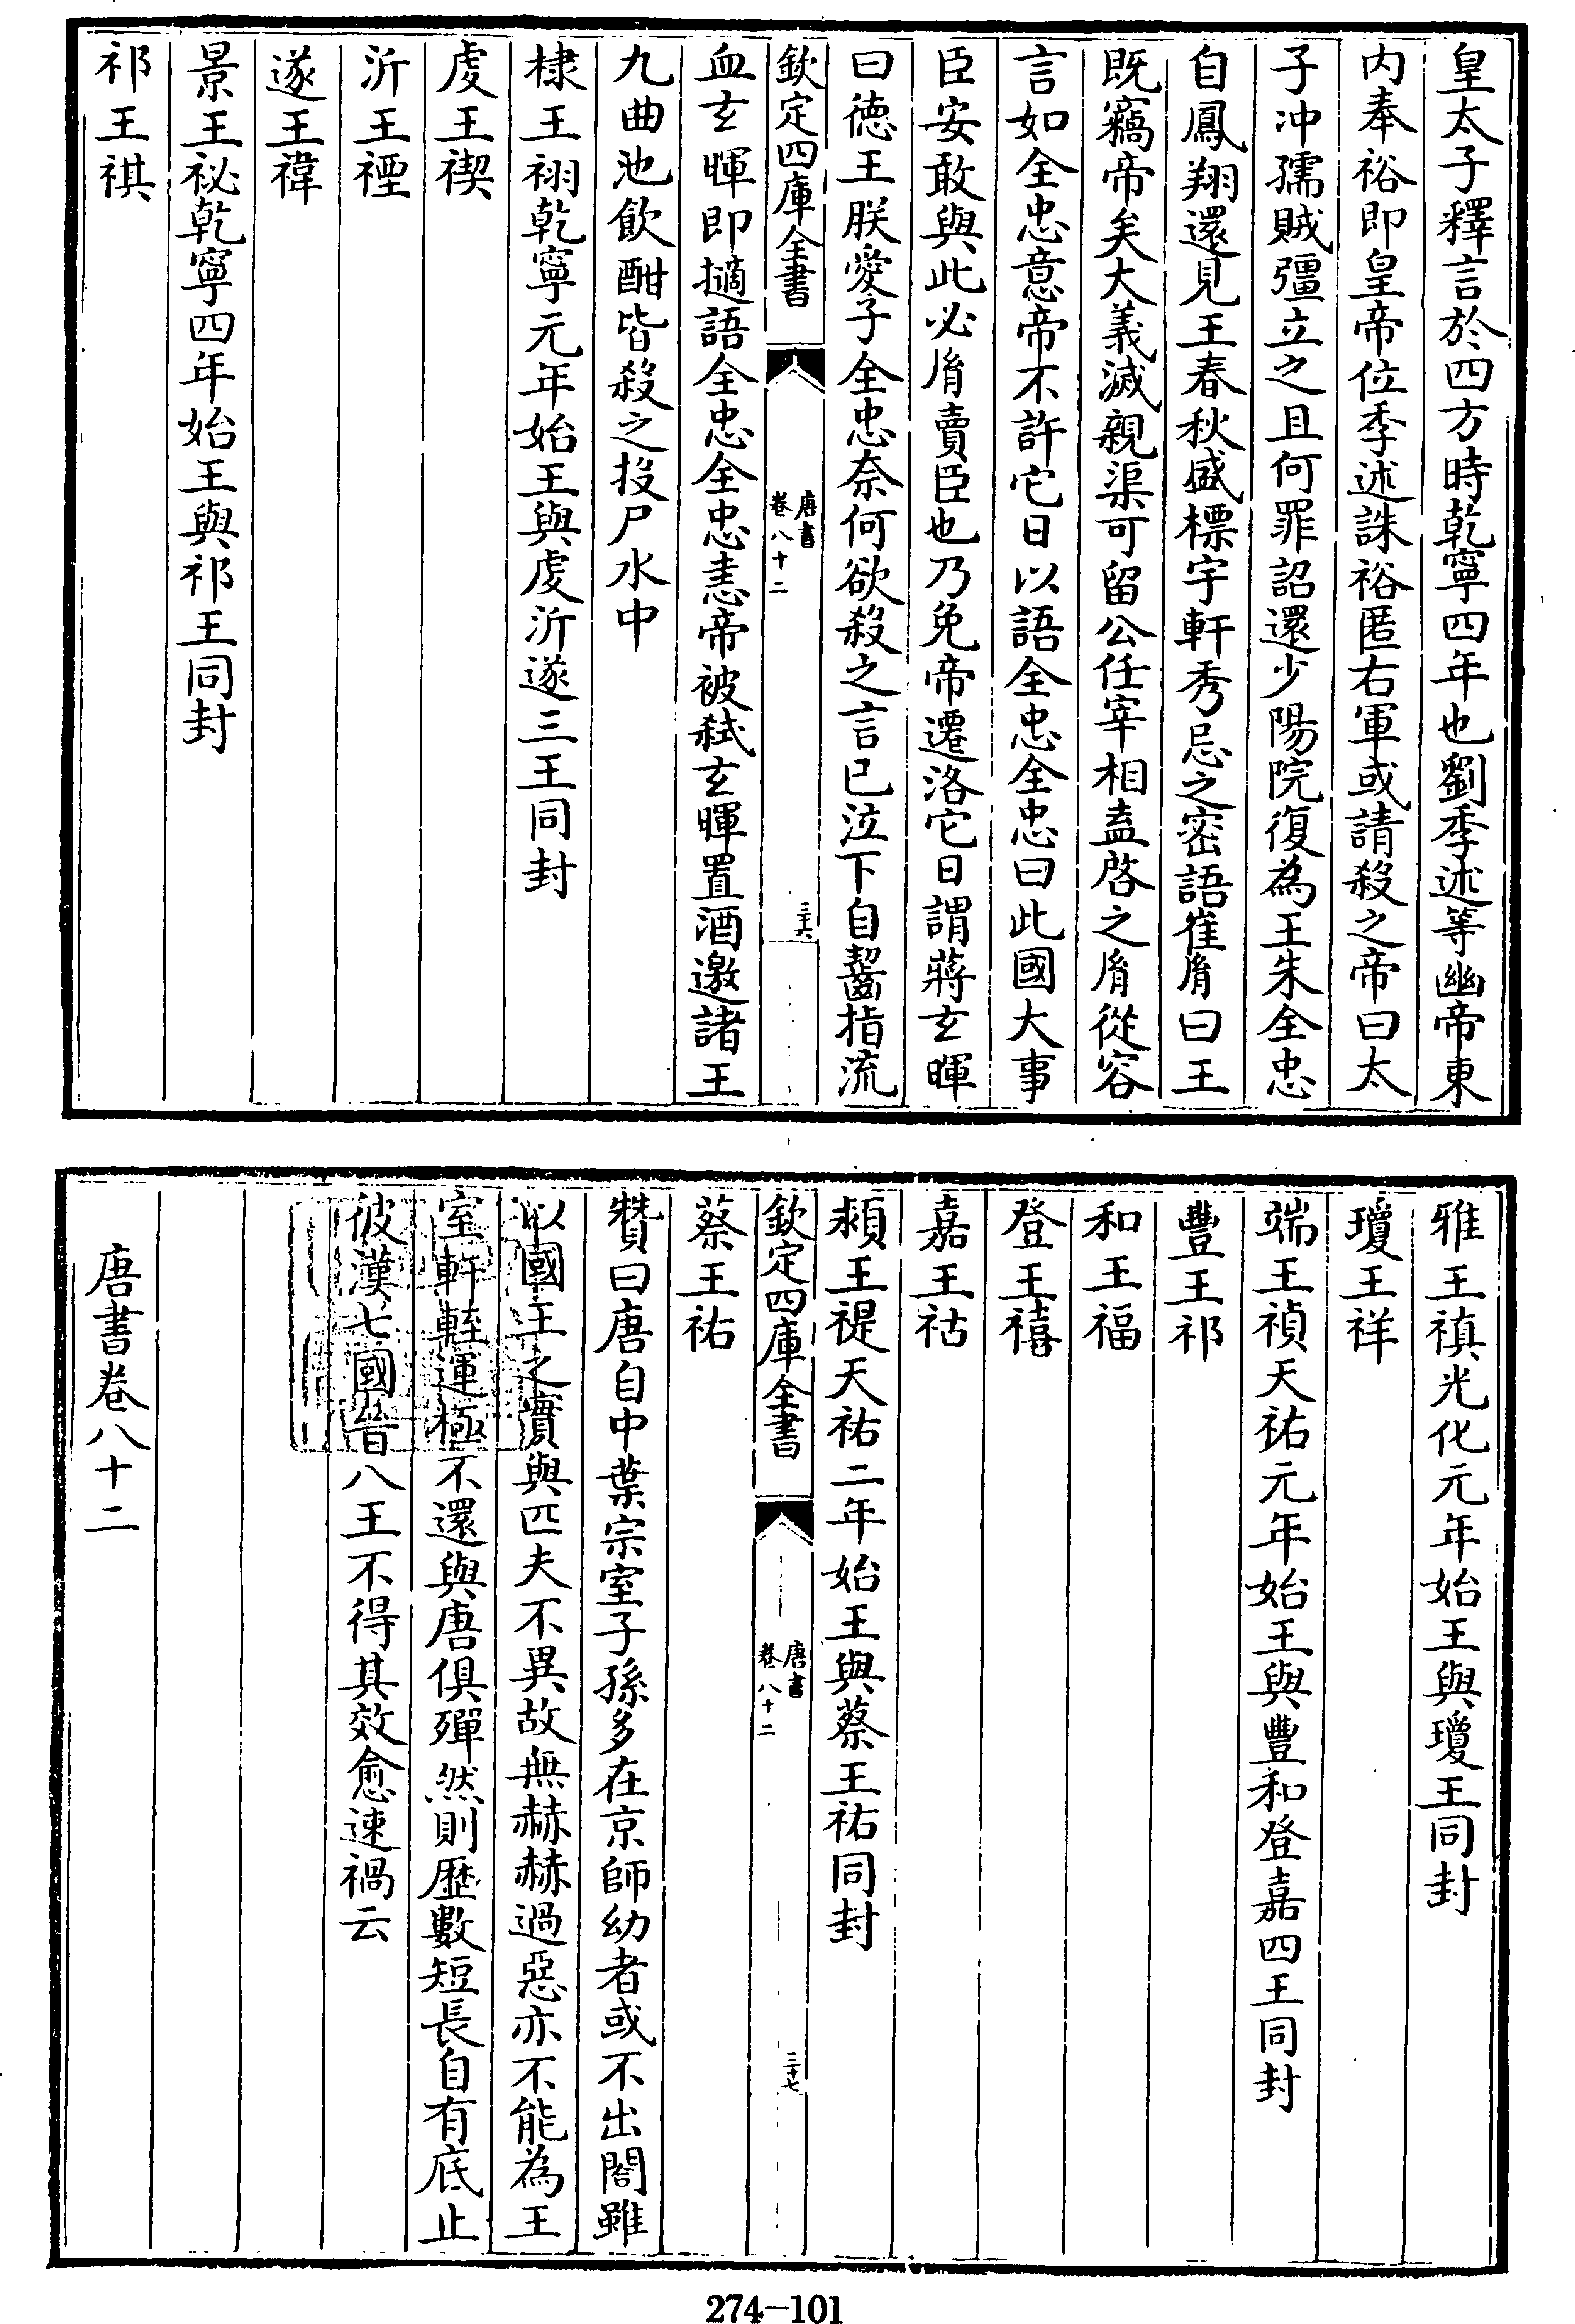 皇太子釋言於四方時乾寧四年也劉季述等幽帝東
内奉裕即皇帝位季述誅裕匿右軍或請殺之帝曰太
子冲孺賊彊立之且何罪詔還少陽院復為王朱全忠
自鳳翔還見王春秋盛標宇軒秀忌之密語崔胤曰王
既竊帝矣大義滅親渠可留公任宰相盍啓之胤從容
言如全忠意帝不許它日以語全忠全忠曰此國大事
臣安敢與此必胤賣臣也乃免帝遷洛它日謂蔣玄暉
曰德王朕愛子全忠奈何欲殺之言已泣下自齧指流
欽定四庫全書
唐書
卷八十二
三十六
血玄暉即擿語全忠全忠恚帝被弑玄暉置酒邀諸王
九曲池飲酣皆殺之投尸水中
棣王祤乾寧元年始王與虔沂遂三王同封
虔王禊
沂王禋
遂王禕
景王祕乾寧四年始王與祁王同封
祁王祺
雅王禛光化元年始王與瓊王同封
瓊王祥
端王禎天祐元年始王與豐和登嘉四王同封
豐王祁
和王福
登王禧
嘉王祜
頳王禔天祐二年始王與蔡王祐同封
欽定四庫全書
唐書
卷八十二
三十七
蔡王祐
贊曰唐自中葉宗室子孫多在京師幼者或不出閤雖
以國王之實與匹夫不異故無赫赫過惡亦不能為王
室軒輊運極不還與唐俱殫然則歴數短長自有底止
彼漢七國晉八王不得其效愈速禍云
唐書卷八十二
274-101